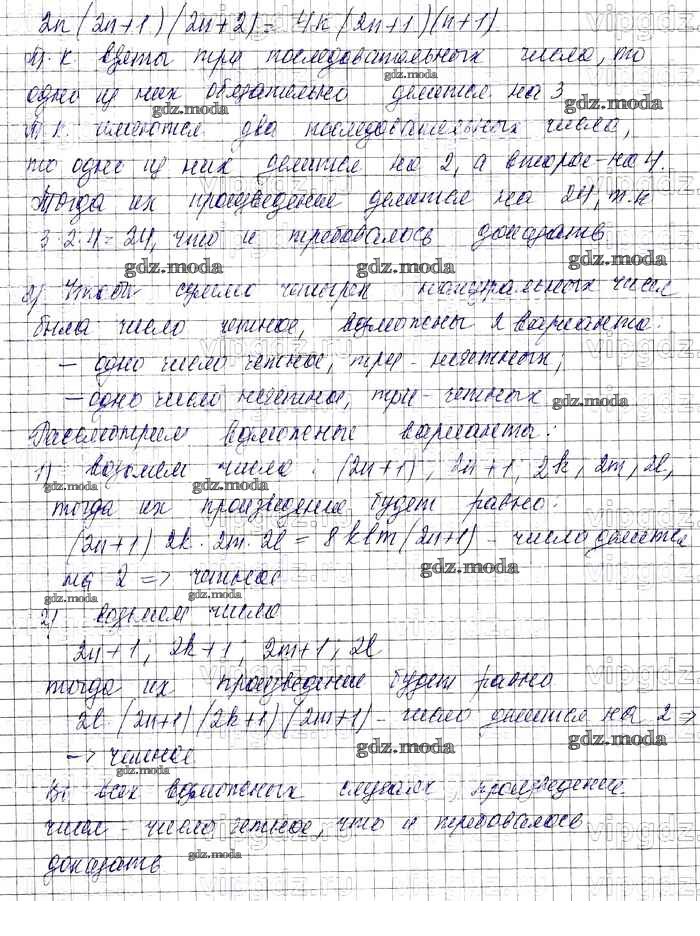 2n(2n+1)(2n+2)=4n(2n+1)(n+1)
Т.к взяты три последовательных числа, то
одно из них обязательно делится на 3
Т.к. имеются два последовательных числа,
то одно из них делится на 2, а второе - на 4.
Тогда их произведение делится на 24, т.к
3·2·4=24, что и требовалось доказать
2) Чтобы сумма четырех натуральных чисел
была число нечетное, возможны 2 варианта:
— одно число четное, три - нечетных;
— одно число нечетное, три - четных
Рассмотрим возможные варианты:
1) возьмем числа: (2n+1), 2n+1; 2k, 2m, 2l,
тогда их произведение будет равно:
(2n+1) 2k · 2m · 2l = 8klm(2n+1) - число делится
на 2 => четное
2) возьмем числа
2n+1; 2k+1; 2m+1; 2l
тогда их произведение будет равно
2l · (2n+1)(2k+1)(2m+1) - число делится на 2 =>
-> четное
Во всех возможных случаях, произведение
чисел - число четное, что и требовалось
доказать
gdz.moda
vipgdz.ru